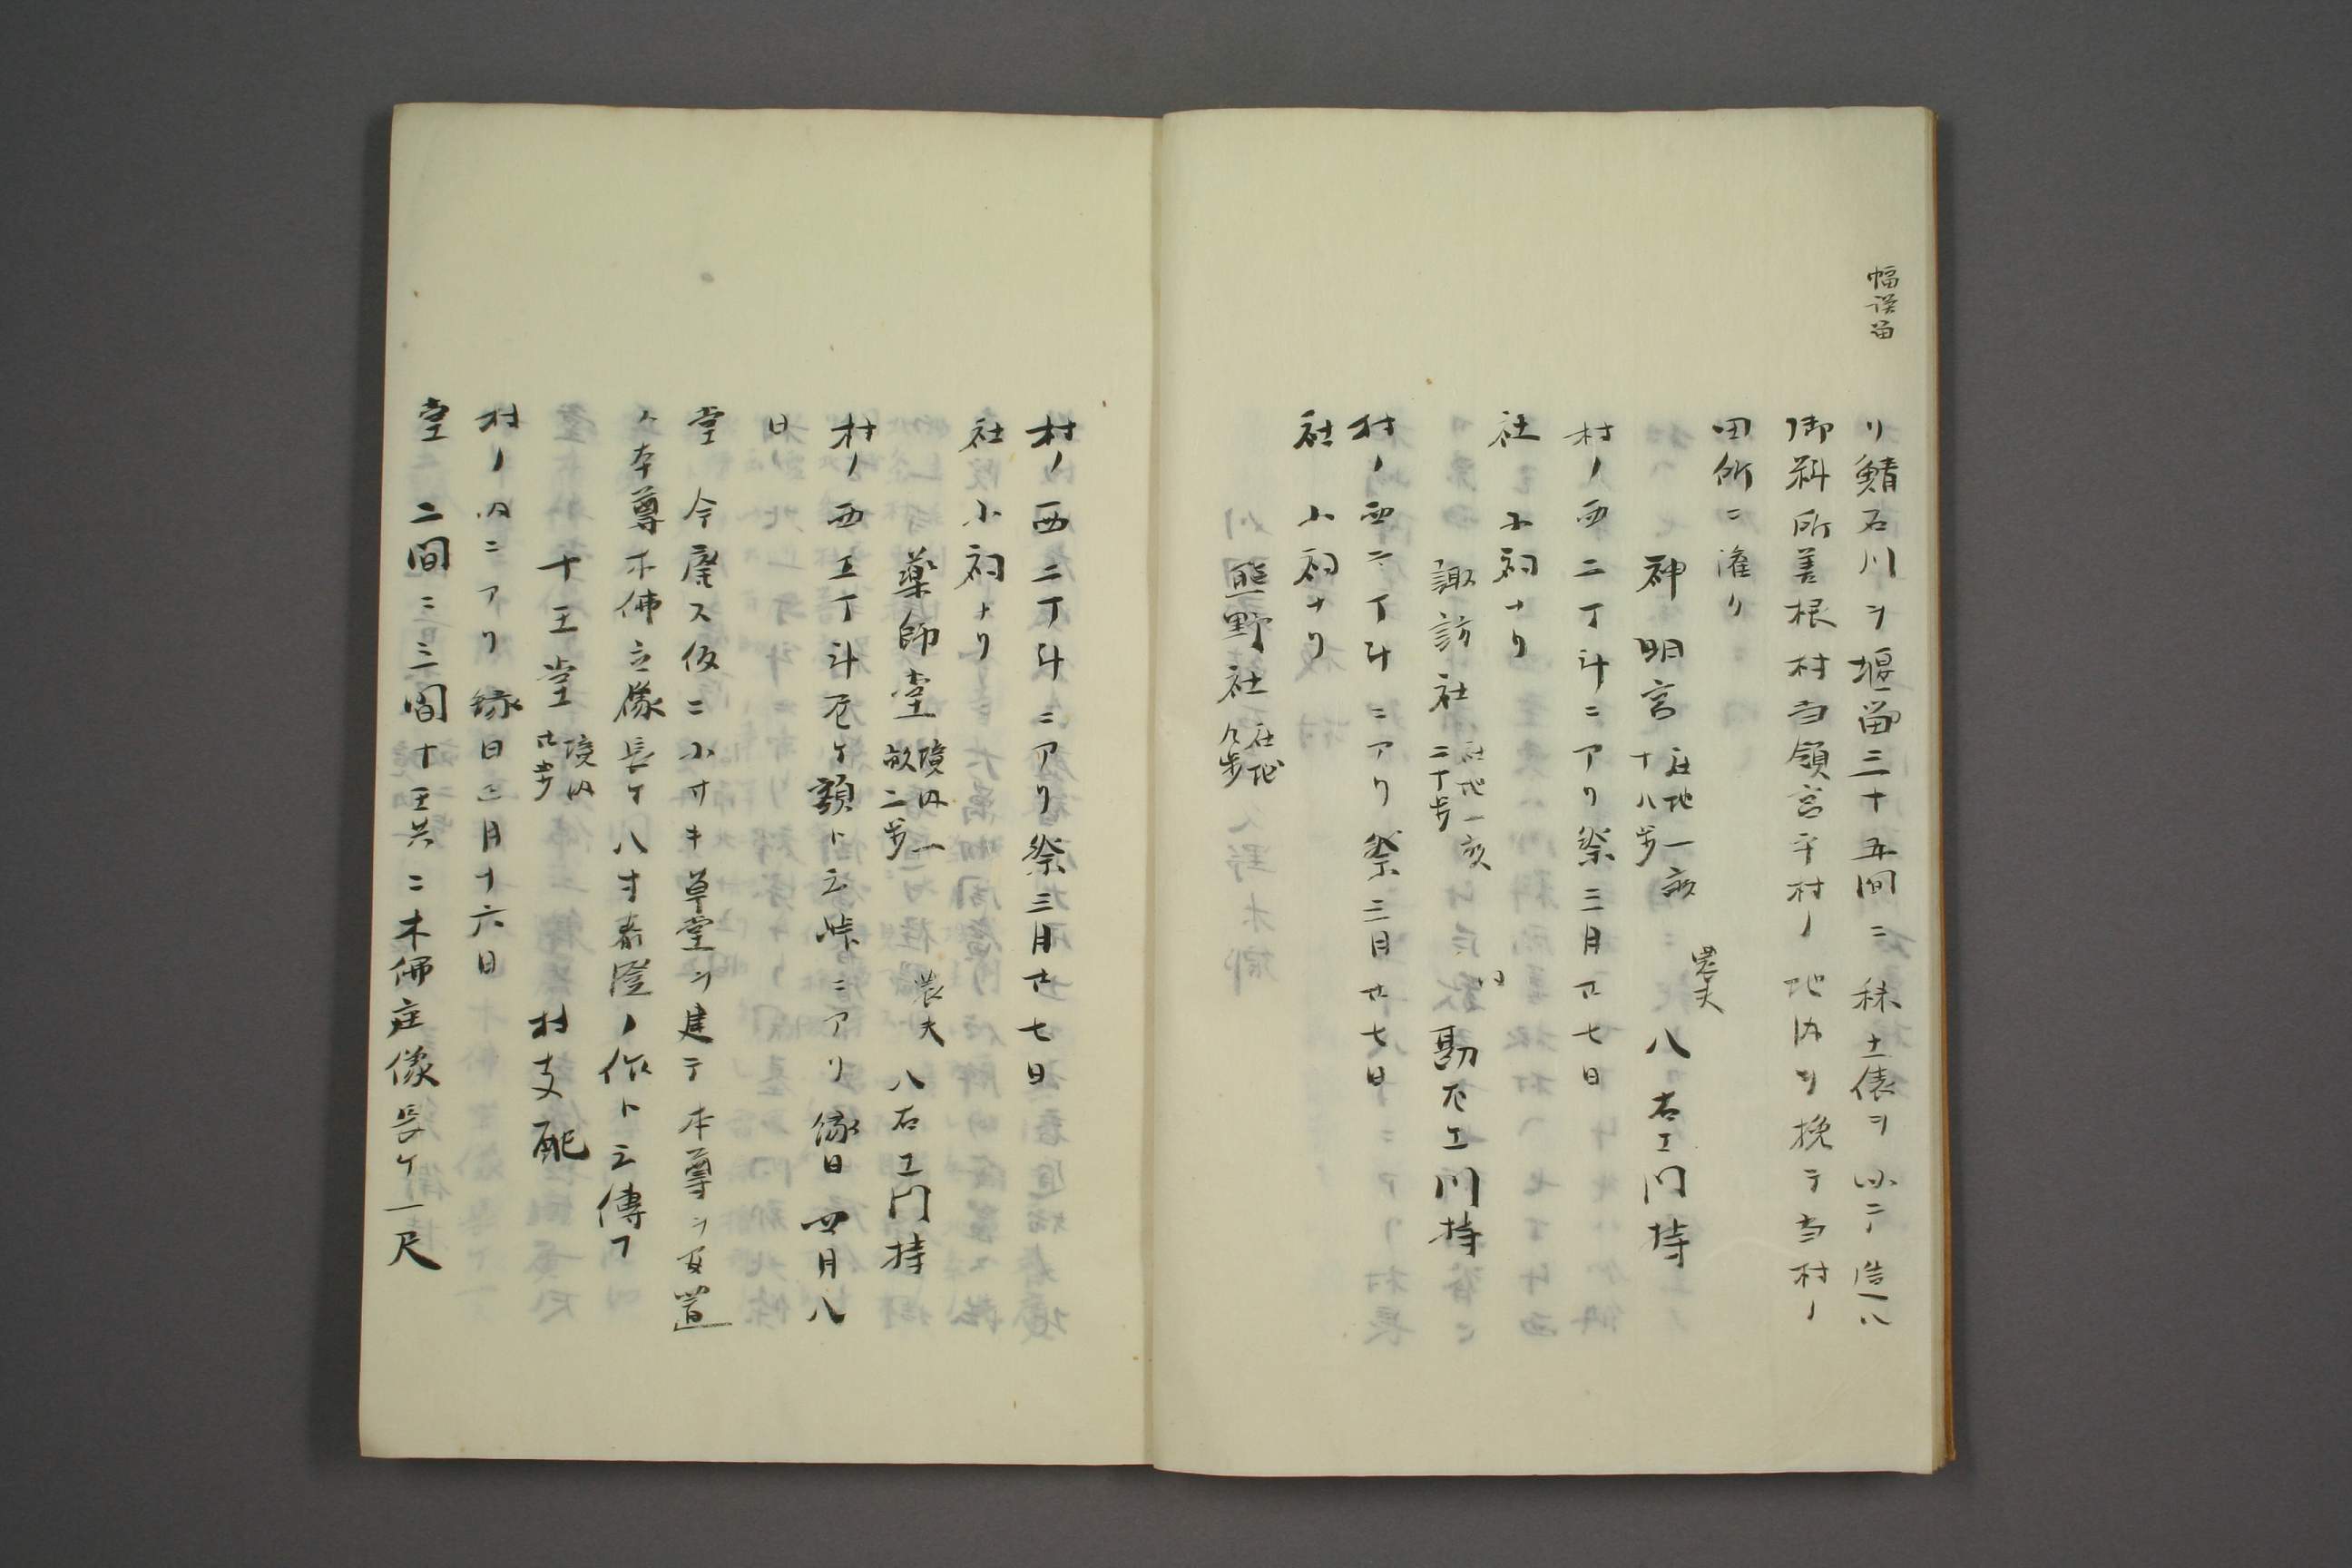 幅誤畄
リ鯖石川ヲ堰畄三十五間ニ秣土俵ヲ以テ造ル
御料所善根村当領宮平村ノ地内ヲ挽テ当村ノ
田所ニ潅リ
神明宮 社地一畝十八歩 農夫 八右エ門持
村ノ西二丁斗ニアリ祭三月廿七日
社 小祠ナリ
諏訪社 社地一畝二十歩 〃 勘左エ門持
村ノ西二丁斗ニアリ祭三月廿七日
社 小祠ナリ
熊野社 社地八歩
村ノ西二丁斗ニアリ祭三月廿七日
社 小祠ナリ
薬師堂 境内一畝二歩 農夫 八右エ門持
村ノ西五丁斗花ケ額ト云峠ニアリ縁日四月八
日
堂 今廃ス仮ニ小サキ草堂ヲ建テ本尊ヲ安置
ス本尊木佛立像長ケ八寸泰澄ノ作ト云傳フ
十王堂 境内廿歩 村支配
村ノ内ニアリ縁日三月十六日
堂 二間ニ三間十王共ニ木佛座像長ケ一尺